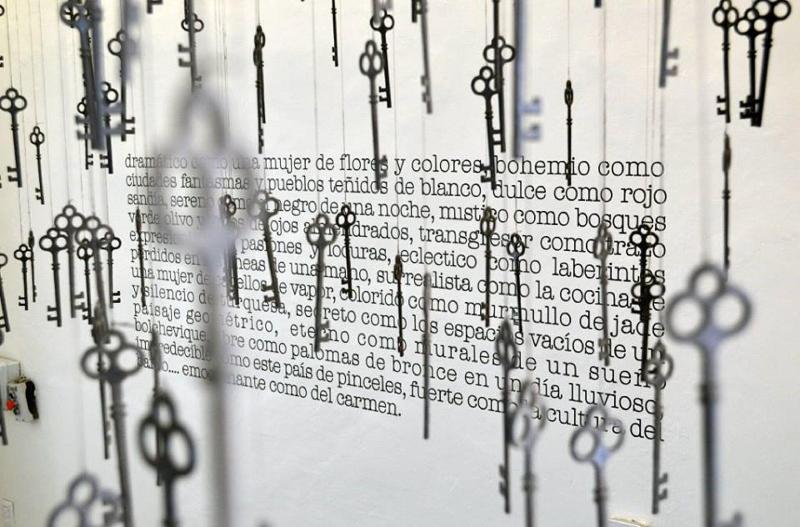 dramático como una mujer de flores y colores, bohemio como
ciudades fantasmas y pueblos teñidos de blanco, dulce como rojo
sandía, sereno negro de una noche, mistico como bosques
verde olivo y ojos almendrados, transgresor como trazo
pasiones eclectico como laberintos
perdidos en lineas de una mano, surrealista como la cocina de
una mujer de cabellos de vapor, colorido como murmullo de jade
y silencio de turquesa, secreto como los espacios vacíos de un
paisaje geométrico, eterno como murales de un sueño
bolchevique, libre como palomas de bronce en un día lluvioso,
impredecible como este país de pinceles, fuerte como la cultura del
emocionante como del carmen.